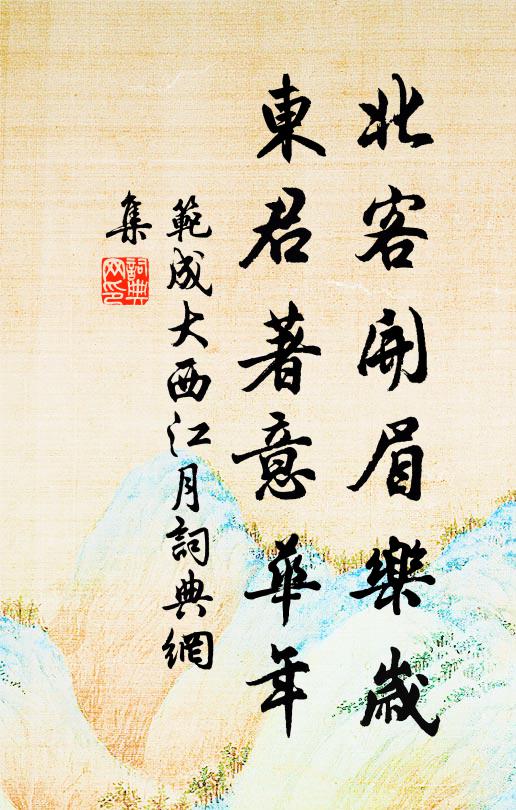 北客開眉樂歲
東君著意華年
範成大西江月詞典網
集
詞典
网印